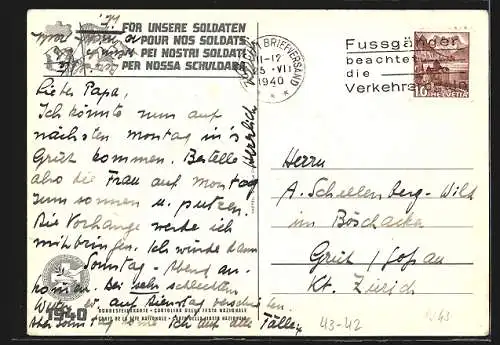 FÜR UNSERE SOLDATEN
POUR NOS SOLDATS
PEI NOSTRI SOLDATI
PER NOSSA SCHULDADA
BRIEFVERSAND
11-12
VII
1940
Fussgänger
beachtet
die
Verkehrs
10
HELVETIA
Lieber Papa,
Ich könnte nun auf
nächsten Montag in's
Grüt kommen. Bestelle
also die Frau auf Montag
zum sonnen u. putzen.
Die Vorhänge werde ich
mitbringen. Ich würde dann
Sonntag-Abend an-
kommen. Bei sehr schlechtem
Wetter ev. auf Dienstag verschieben.
Ich auf alle Fälle
Herrlich
1940
BUNDESFEIERKARTE - CARTOLINA DELLA FESTA NAZIONALE
CARTE DE LA FÊTE NATIONALE
Herrn
A. Schellenberg-Wild
im Böschacker
Grüt / Gossau
Kt. Zürich
43-42